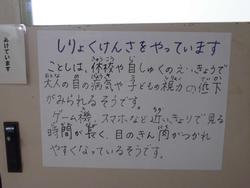 あけています
しりょくけんさをやっています
ことしは、休校や自しゅくのえいきょうで
大人の目の病気や子どもの視力の低下
がみられるそうです。
ゲーム機、スマホなど近いきょりで見る
時間が長く、目のきん肉がつかれ
やすくなっているそうです。